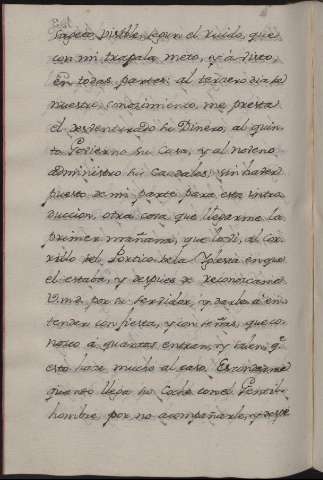 parezco visible, segun el ruido, que
con mi trapala meto, y à visto,
en todas partes: al tercero dia de
nuestro conozimiento, me presta
el desventurado su Dinero, al quin-
to Govierno su Casa, y al noveno
administro sus Caudales, sin haver
puesto de mi parte para esta intro
duccion, otra cosa que llegarme la
primer mañana, que lo vi, al cor-
rillo del Portico de la Yglesia en que
el estaba, y despues de reconozcame
V.md. por su servidor, y darle à en-
tender con fiesta, y con señas, que co-
nozco a quantas entran, y salen, q.e
esto haze mucho al caso. Esconderme
quando llega su Coche con el Gentil-
hombre por no acompañarle, y desp